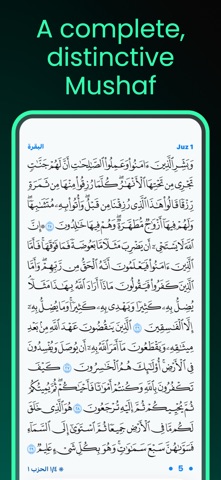 A complete,
distinctive
Mushaf
البقرة Juz 1
وَبَشِّرِ ٱلَّذِينَ ءَامَنُوا۟ وَعَمِلُوا۟ ٱلصَّٰلِحَٰتِ أَنَّ لَهُمْ جَنَّٰتٍ
تَجْرِى مِن تَحْتِهَا ٱلْأَنْهَٰرُ كُلَّمَا رُزِقُوا۟ مِنْهَا مِن ثَمَرَةٍ
رِّزْقًا قَالُوا۟ هَٰذَا ٱلَّذِى رُزِقْنَا مِن قَبْلُ وَأُتُوا۟ بِهِۦ مُتَشَٰبِهًا
وَلَهُمْ فِيهَآ أَزْوَٰجٌ مُّطَهَّرَةٌ وَهُمْ فِيهَا خَٰلِدُونَ ٢٥ ۞ إِنَّ
ٱللَّهَ لَا يَسْتَحْىِۦٓ أَن يَضْرِبَ مَثَلًا مَّا بَعُوضَةً فَمَا فَوْقَهَا فَأَمَّا
ٱلَّذِينَ ءَامَنُوا۟ فَيَعْلَمُونَ أَنَّهُ ٱلْحَقُّ مِن رَّبِّهِمْ وَأَمَّا
ٱلَّذِينَ كَفَرُوا۟ فَيَقُولُونَ مَاذَآ أَرَادَ ٱللَّهُ بِهَٰذَا مَثَلًا
يُضِلُّ بِهِۦ كَثِيرًا وَيَهْدِى بِهِۦ كَثِيرًا وَمَا يُضِلُّ بِهِۦٓ
إِلَّا ٱلْفَٰسِقِينَ ٢٦ ٱلَّذِينَ يَنقُضُونَ عَهْدَ ٱللَّهِ مِنۢ بَعْدِ
مِيثَٰقِهِۦ وَيَقْطَعُونَ مَآ أَمَرَ ٱللَّهُ بِهِۦٓ أَن يُوصَلَ وَيُفْسِدُونَ
فِى ٱلْأَرْضِ أُو۟لَٰٓئِكَ هُمُ ٱلْخَٰسِرُونَ ٢٧ كَيْفَ
تَكْفُرُونَ بِٱللَّهِ وَكُنتُمْ أَمْوَٰتًا فَأَحْيَٰكُمْ ثُمَّ يُمِيتُكُمْ
ثُمَّ يُحْيِيكُمْ ثُمَّ إِلَيْهِ تُرْجَعُونَ ٢٨ هُوَ ٱلَّذِى خَلَقَ
لَكُم مَّا فِى ٱلْأَرْضِ جَمِيعًا ثُمَّ ٱسْتَوَىٰٓ إِلَى ٱلسَّمَآءِ
فَسَوَّىٰهُنَّ سَبْعَ سَمَٰوَٰتٍ وَهُوَ بِكُلِّ شَىْءٍ عَلِيمٌ ٢٩
١/٤ الحزب ١ 5